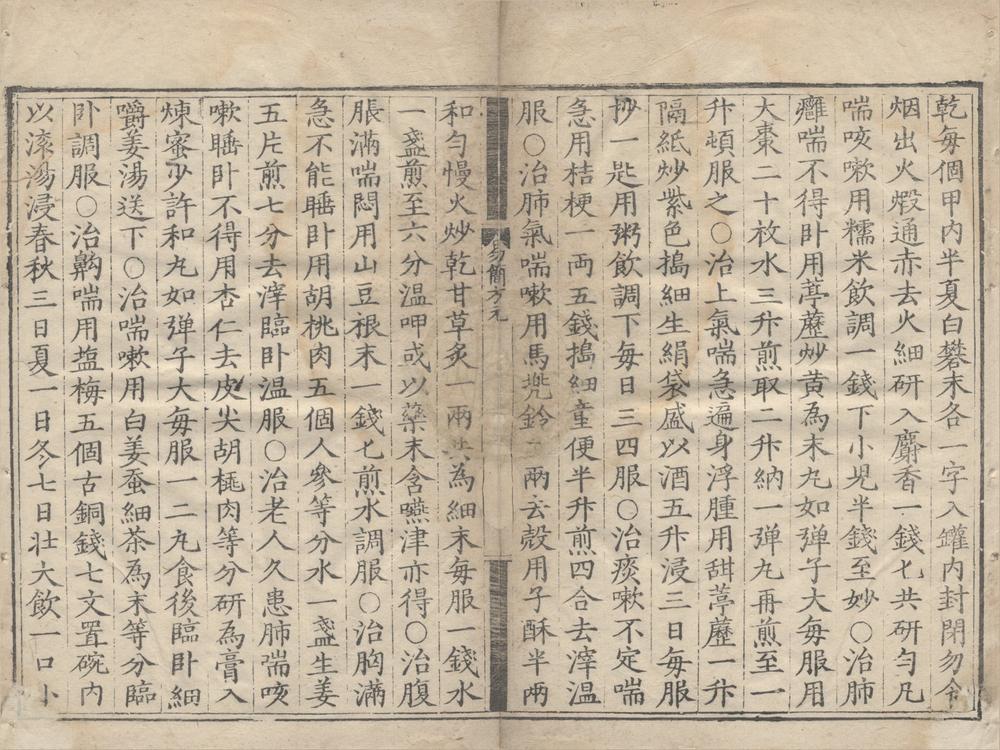 乾每個甲內半夏白礬末各一字入鑵內封閉勿令
烟出火煆通赤去火細研入麝香一錢匕共研勻凡
喘咳嗽用糯米飲調一錢下小児半錢至妙○治肺
癰喘不得卧用葶藶炒黄為末丸如弹子大每服用
大棗二十枚水三升煎取二升納一弹丸再煎至一
升頓服之○治上氣喘急遍身浮腫用甜葶藶一升
隔紙炒紫色搗細生絹袋盛以酒五升浸三日每服
抄一匙用粥飲調下每日三四服○治痰嗽不定喘
急用桔梗一両五錢搗細童便半升煎四合去滓温
服○治肺氣喘嗽用馬兠鈴一兩去殼用子酥半兩
易簡方元
和勻慢火炒乾甘草炙一兩共為細末每服一錢水
一盞煎至六分温呷或以藥末含嚥津亦得○治腹
脹滿喘悶用山豆根末一錢匕煎水調服○治胸滿
急不能睡卧用胡桃肉五個人參等分水一盞生姜
五片煎七分去滓臨卧温服○治老人久患肺喘咳
嗽睡卧不得用杏仁去皮尖胡桃肉等分研為膏入
煉蜜少許和丸如弹子大每服一二丸食後臨卧細
嚼姜湯送下○治喘嗽用白姜蚕細茶為末等分臨
卧調服○治齁喘用塩梅五個古銅錢七文置碗内
以滚湯浸春秋三日夏一日冬七日壮大飲一口小